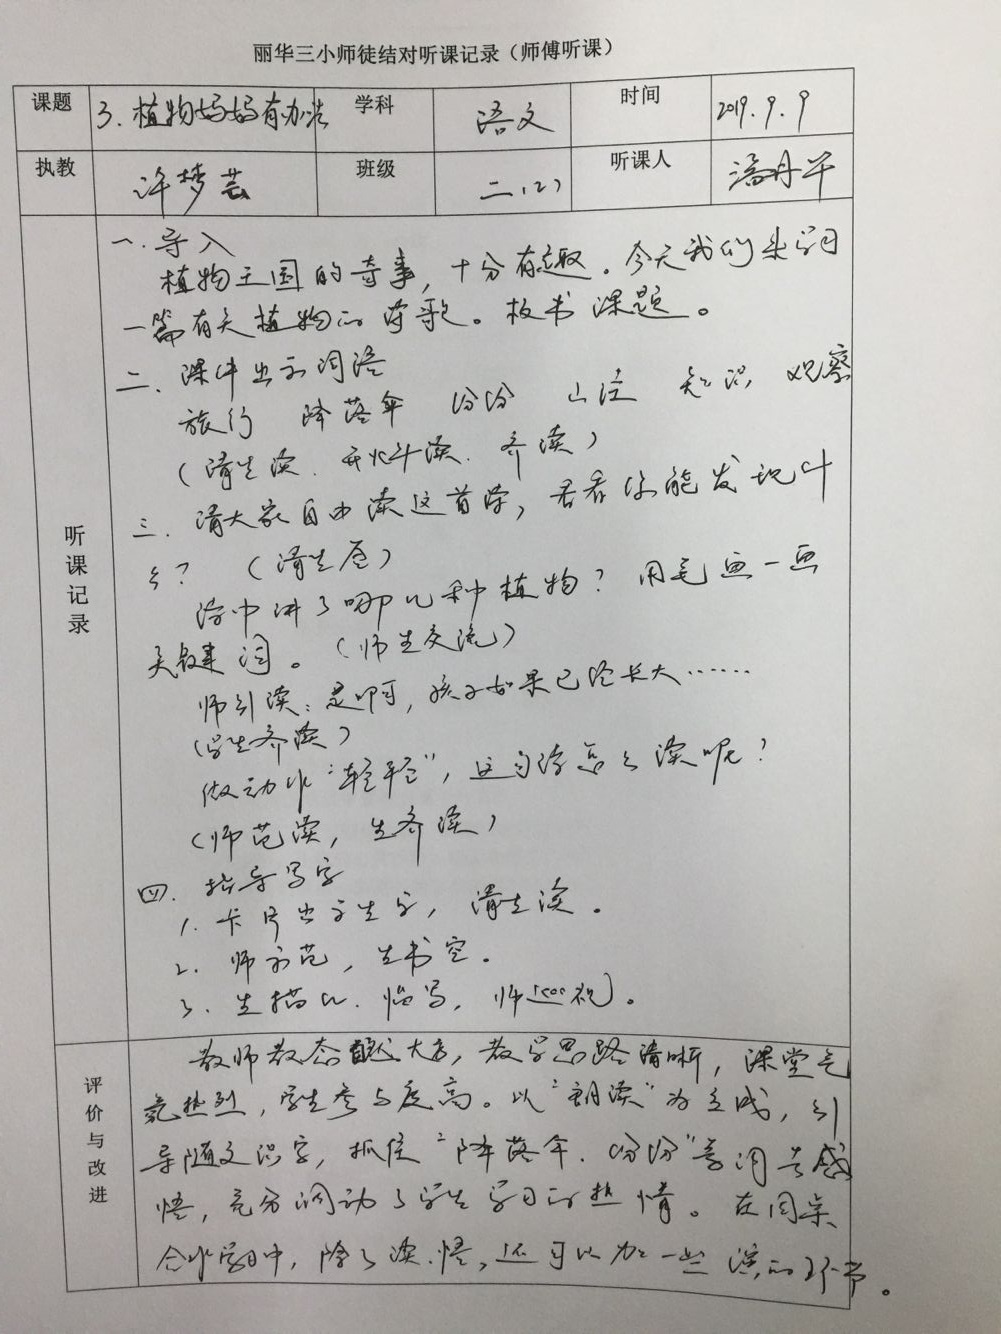 丽华三小师徒结对听课记录（师傅听课）
课题 3.植物妈妈有办法 学科 语文 时间 2019.9.9
执教 许梦芸 班级 二（2） 听课人 潘丹平
听课记录
一.导入
植物王国的奇事，十分有趣。今天我们来学习
一篇有关植物的诗歌。板书课题。
二.课件出示词语
旅行 降落伞 纷纷 山洼 知识 观察
（请生读.开火车读.齐读）
三.请大家自由读这首诗，看看你能发现什
么？（请生答）
诗中讲了哪几种植物？用笔画一画
关键词。（师生交流）
师引读：是啊，孩子如果已经长大……
（学生齐读）
做动作“轻轻”，这句诗怎么读呢？
（师范读，生齐读）
四.指导写字
1.卡片出示生字，请生读。
2.师示范，生书空。
3.生描红.临写，师巡视。
评价与改进
教师教态自然大方，教学思路清晰，课堂气
氛热烈，学生参与度高。以“朗读”为主线，引
导随文识字，抓住“降落伞.纷纷”等词去感
悟，充分调动了学生学习的热情。在同桌
合作学习中，除了读.悟，还可以加一些演的环节。